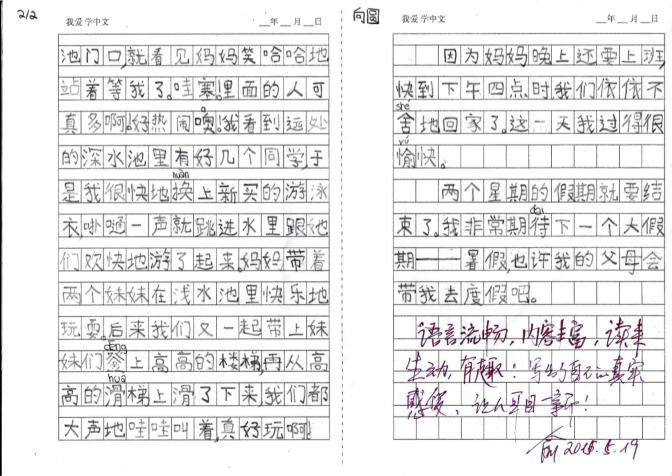 2/2
我爱学中文 __年__月__日
池门口,就看见妈妈笑哈哈地
站着等我了。哇塞!里面的人可
真多啊!好热闹噢!我看到远处
的深水池里有好几个同学,于
huàn
是我很快地换上新买的游泳
衣,扑嗵一声就跳进水里跟她
们欢快地游了起来。妈妈带着
两个妹妹在浅水池里快乐地
玩耍。后来我们又一起带上妹
dēng
妹们登上高高的楼梯,再从高
huá
高的滑梯上滑了下来,我们都
大声地哇哇叫着,真好玩啊!
向圆
我爱学中文 __年__月__日
因为妈妈晚上还要上班,
快到下午四点时,我们依依不
shě
舍地回家了。这一天我过得很
yú
愉快。
两个星期的假期就要结
dài
束了。我非常期待下一个大假
期——暑假,也许我的父母会
带我去度假吧。
语言流畅,内容丰富,读来
生动,有趣!写出了自己的真实
感受,让人耳目一新!
俞 2015.5.19